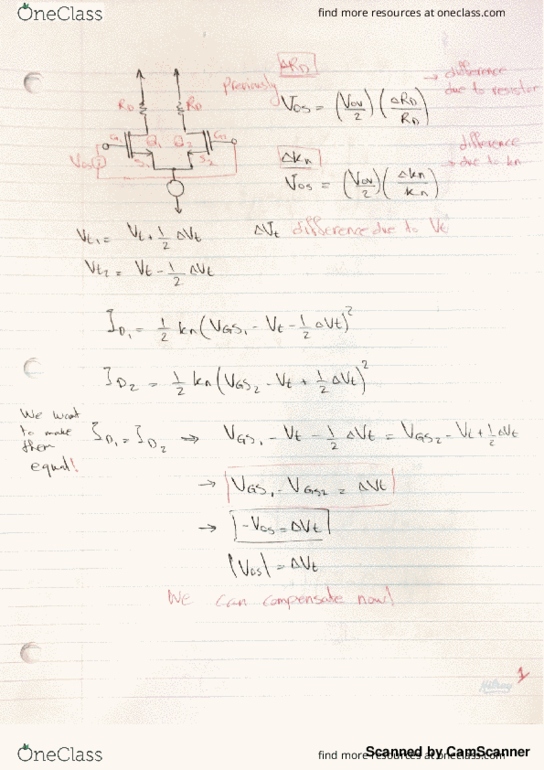 OneClass
find more resources at oneclass.com
ΔRD
Previously
VOS = (VOV/2)(ΔRD/RD)
→ difference
due to resistor
RD RD
G1 Q1 Q2 G2
S1 S2
VOS
Δkn
VOS = (VOV/2)(Δkn/kn)
difference
→ due to kn
Vt1 = Vt + 1/2 ΔVt
ΔVt difference due to Vt
Vt2 = Vt - 1/2 ΔVt
ID1 = 1/2 kn(VGS1 - Vt - 1/2 ΔVt)²
ID2 = 1/2 kn(VGS2 - Vt + 1/2 ΔVt)²
We want
to make
them
equal!
ID1 = ID2 ⇒ VGS1 - Vt - 1/2 ΔVt = VGS2 - Vt + 1/2 ΔVt
→ VGS1 - VGS2 = ΔVt
→ -VOS = ΔVt
|VOS| = ΔVt
We can compensate now!
1
Hilroy
OneClass
find more resources at oneclass.com
Scanned by CamScanner